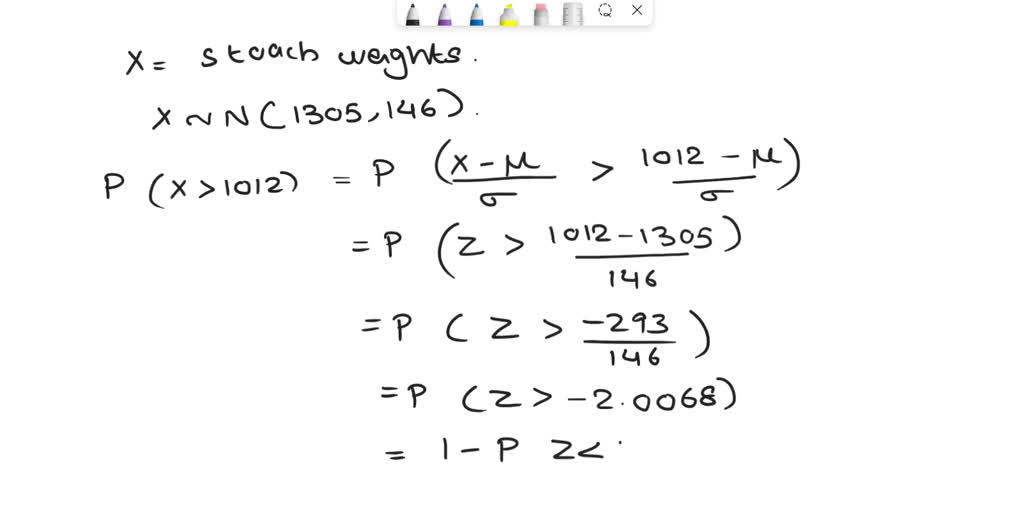 X = staach weights.
X ~ N (1305, 146).
P (X > 1012) = P (X - μ / σ > 1012 - μ / σ)
= P (Z > 1012 - 1305 / 146)
= P (Z > -293 / 146)
= P (Z > -2.0068)
= 1 - P Z < .